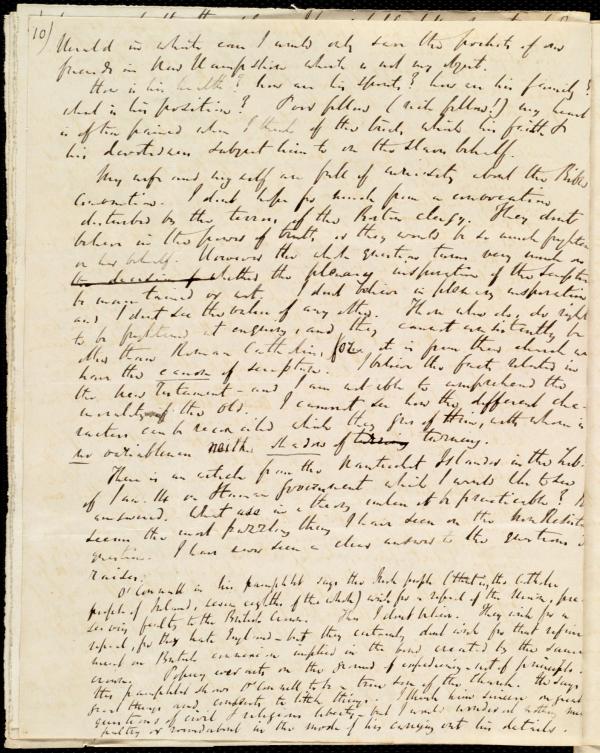 10)
Herald in which case I would only save the pockets of our
friends in New Hampshire which is not my object.
How is his health? how are his spirits? how are his family?
what is his position? Poor fellow (rich fellow!) my heart
is often pained when I think of the trials which his faith &
his devotedness subject him to on the slaves behalf.
My wife and myself are full of curiosity about the Bible
Convention. I dont hope for much from a convocation
disturbed by the terrors of the Boston clergy. They dont
believe in the power of truth, or they would be so much frighten
on his behalf. However the whole question turns very much on
whether the plenary inspiration of the scripture
be maintained or not. I dont believe in plenary inspiration
and I dont see the value of any other. Those who do, do right
to be frightened at enquiry, and they cannot consistently be
other than Roman Catholics, for it is from their church we
have the canon of scripture. I believe the facts related in
the New Testament - and I am not able to comprehend the
morality of the Old. I cannot see how the different cha-
racters can be reconciled which they give of Him, with whom is
no variableness neither shadow of turning.
There is an article from the Nantucket Islander in the Lib.
of Jan. on Human Government which I would like to see
answered. What use is a theory unless it be practicable? It
seems the most puzzling thing I have seen on the Non Resistance
question. I have never seen a clear answer to the questions it
raises.
O'Connell in his pamphlet says the Irish people (that is, the Catholic
people of Ireland, seven eighths of the whole) wish for a repeal of the Union, pre-
serving fealty to the British Crown. This I dont believe. They wish for a
repeal, for they hate England - but they certainly dont wish for that
ment on British connexion implied in the bond created by the same
crown. Popery wars on the ground of expediency - not of principle.
This pamphlet shows O'Connell to be a true son of the Church. He says
great things and connects to little things. I think him sincere on great
questions of civil & religious liberty - but I would wonder at nothing
paltry or roundabout in the mode of his carrying out his details.